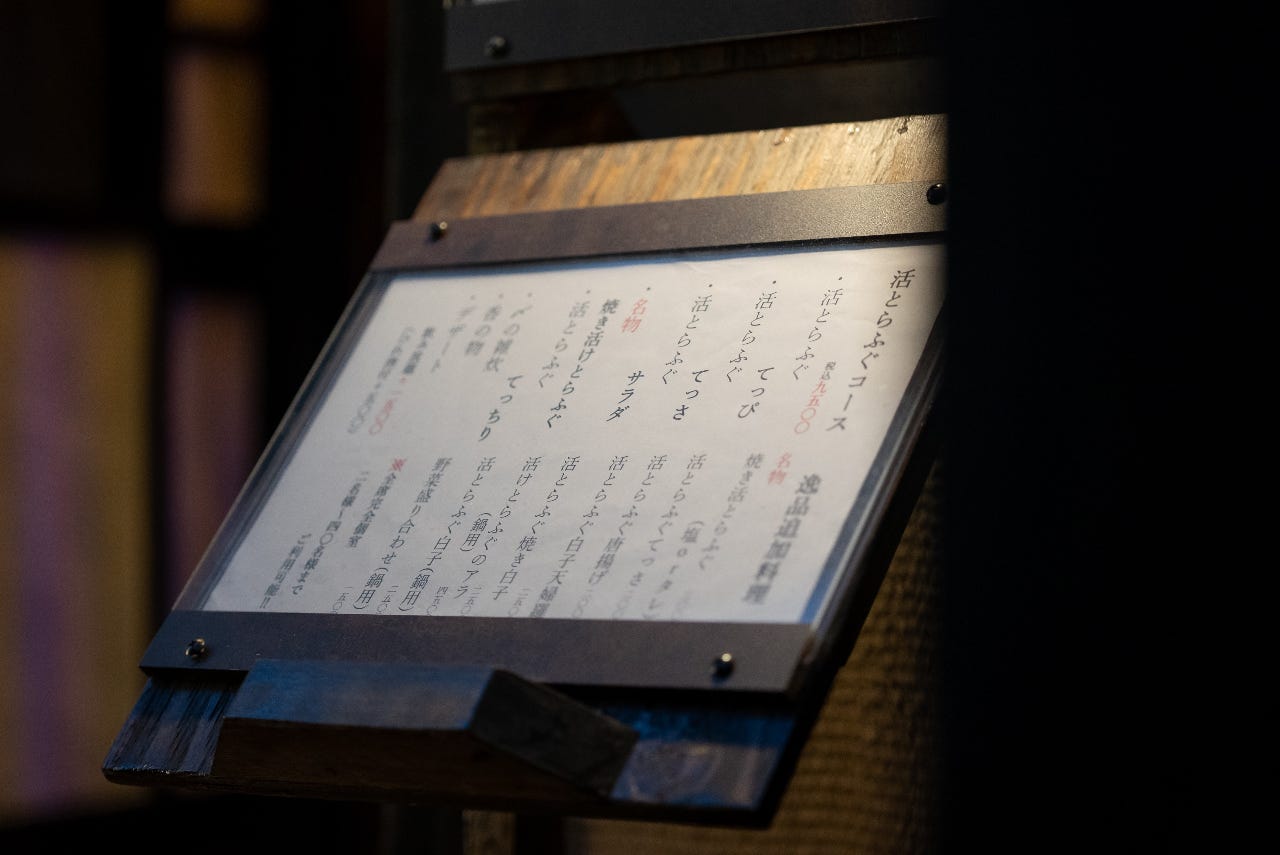 活とらふぐコース
税込九五〇〇
・活とらふぐ
・活とらふぐ
てっぴ
・活とらふぐ
てっさ
・名物
サラダ
焼き活けとらふぐ
・活とらふぐ
てっちり
・〆の雑炊
・香の物
・デザート
逸品追加料理
名物
焼き活とらふぐ
(塩orタレ)
活とらふぐ
活とらふぐてっさ
活とらふぐ唐揚げ
活とらふぐ白子天婦羅
活けとらふぐ焼き白子
活とらふぐのアラ
(鍋用)
活とらふぐ白子(鍋用)
野菜盛り合わせ(鍋用)
※全席完全個室
二名様〜四〇名様まで
ご利用可能!!